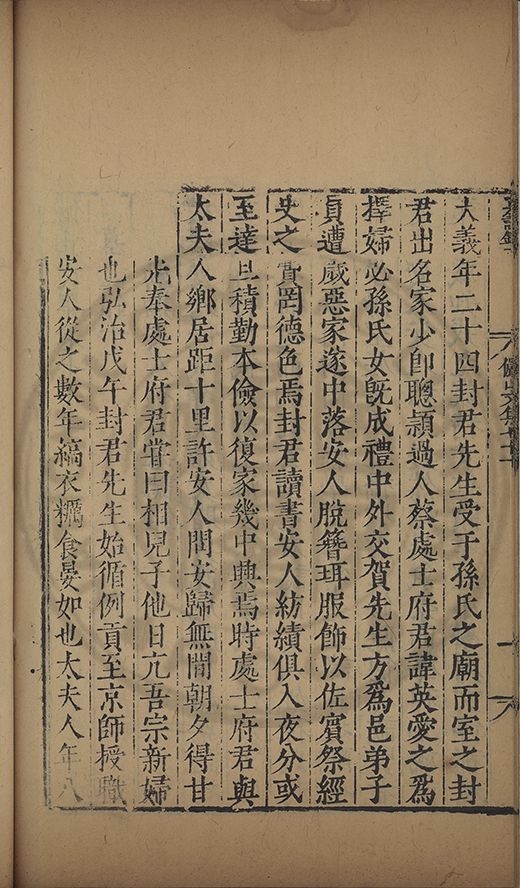 大義年二十四封君先生受于孫氏之廟而室之封
君出名家少即聰頴過人蔡處士府君諱英愛之爲
擇婦必孫氏女旣成禮中外交賀先生方爲邑弟子
員遭歲惡家遂中落安人脫簪珥服飾以佐賓祭經
史之費罔德色焉封君讀書安人紡績俱入夜分或
至達旦積勤本儉以復家幾中興焉時處士府君與
太夫人鄉居距十里許安人問安歸無間朝夕得甘
先奉處士府君嘗曰相兒子他日亢吾宗新婦
也弘治戊午封君先生始循例貢至京師授職
安人從之數年縞衣糲食晏如也太夫人年八